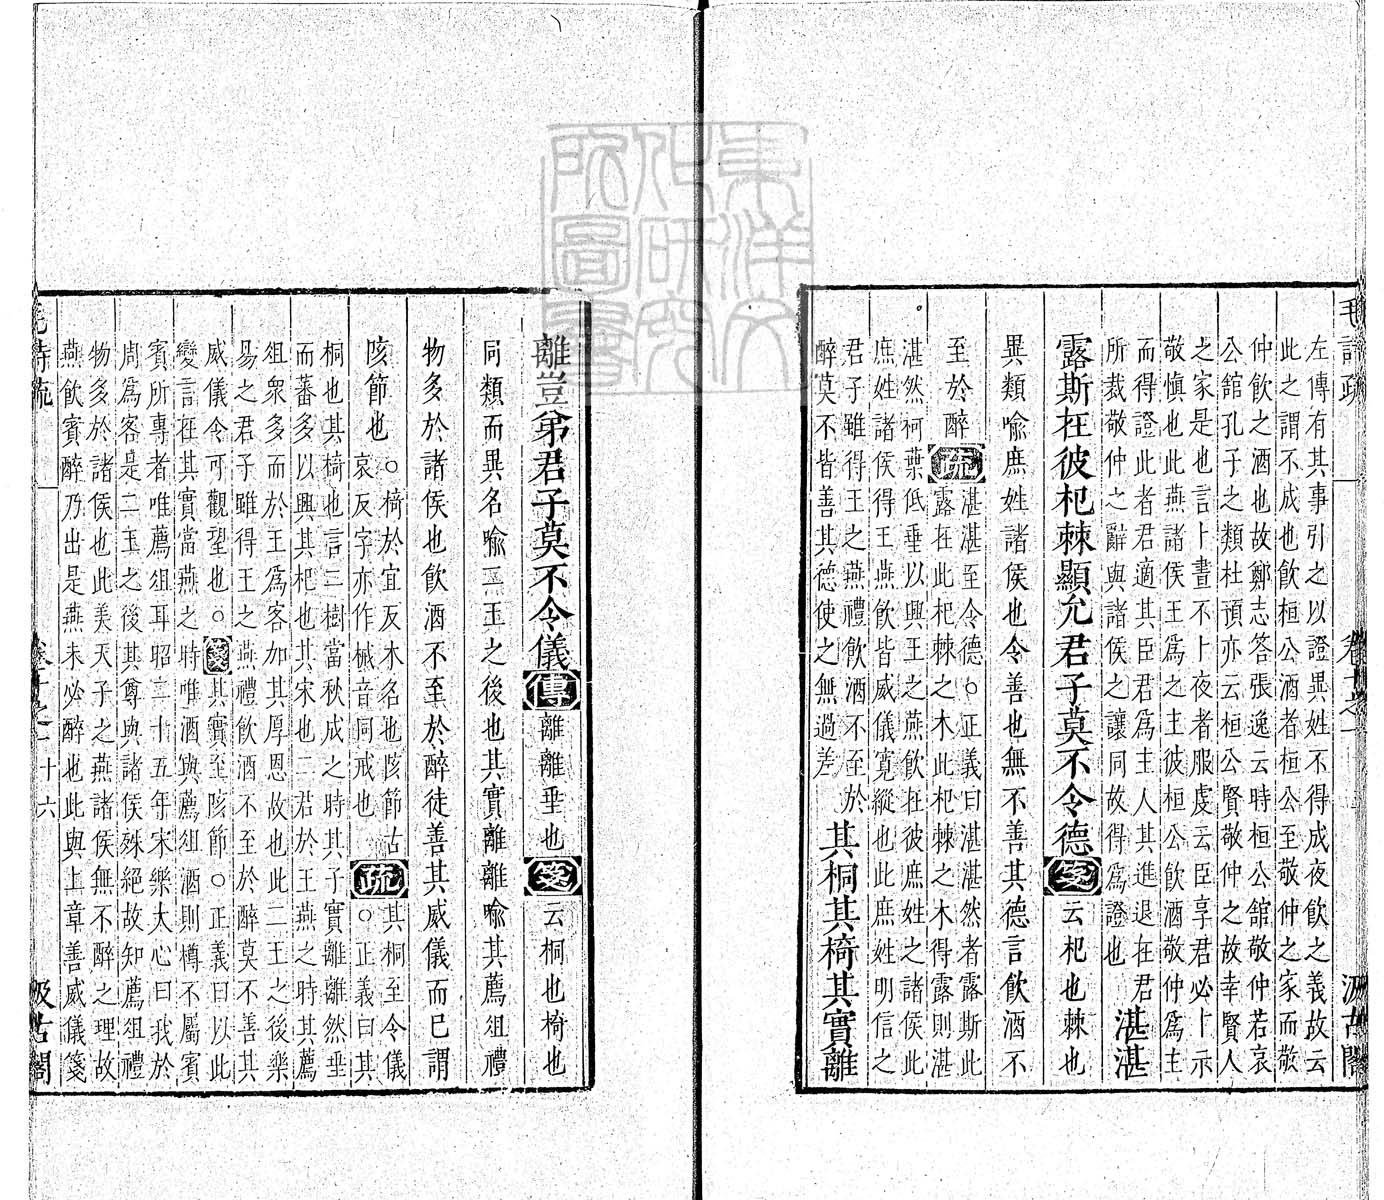 毛詩疏
卷十之一
汲古閣
左傳有其事引之以證異姓不得成夜飲之義故云
此之謂不成也飲桓公酒者桓公至敬仲之家而敬
仲飲之酒也故鄭志答張逸云時桓公舘敬仲若哀
公舘孔子之類杜預亦云桓公賢敬仲之故幸賢人
之家是也言卜晝不卜夜者服虔云臣享君必卜示
敬愼也此燕諸侯王爲之主彼桓公飲酒敬仲爲主
而得證此者君適其臣君爲主人其進退在君
所裁敬仲之辭與諸侯之讓同故得爲證也
湛湛
露斯在彼杞棘顯允君子莫不令德箋云杞也棘也
異類喩庶姓諸侯也令善也無不善其德言飲酒不
至於醉疏
湛湛至令德○正義曰湛湛然者露斯此
露在此杞棘之木此杞棘之木得露則湛
湛然柯葉低垂以興王之燕飲在彼庶姓之諸侯此
庶姓諸侯得王燕飲皆威儀寬縱也此庶姓明信之
君子雖得王之燕禮飲酒不至於
醉莫不皆善其德使之無過差
其桐其椅其實離
離豈弟君子莫不令儀傳離離垂也箋云桐也椅也
同類而異名喩二王之後也其實離離喩其薦俎禮
物多於諸侯也飲酒不至於醉徒善其威儀而已謂
陔節也
○椅於宜反木名也陔節古
哀反字亦作祴音同戒也
疏
其桐至令儀
○正義曰其
桐也其椅也言二樹當秋成之時其子實離離然垂
而蕃多以興其杞也其宋也二君於王燕之時其薦
俎衆多而於王爲客加其厚恩故也此二王之後樂
易之君子雖得王之燕禮飲酒不至於醉莫不善其
威儀令可觀望也○箋其實至陔節○正義曰以此
變言在其實當燕之時唯酒與薦俎酒則樽不屬賓
賓所專者唯薦俎耳昭二十五年宋樂大心曰我於
周爲客是二王之後其尊與諸侯殊絕故知薦俎禮
物多於諸侯也此美天子之燕諸侯無不醉之理故
燕飲賓醉乃出是燕未必醉也此與上章善威儀箋
毛詩疏
卷十之一
十六
汲古閣